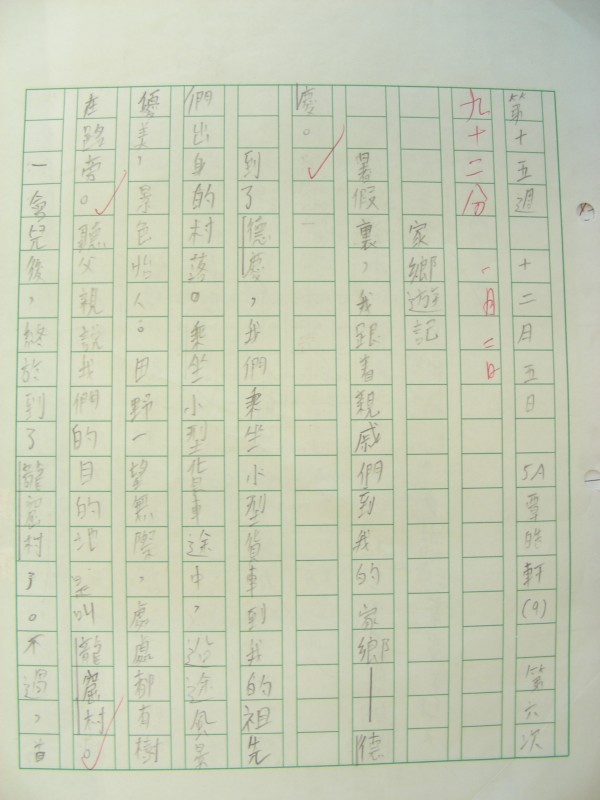 第十五週 十二月五日 5A 軒(9) 第六次
九十二分 一月二日
家鄉遊記
暑假裏,我跟着親戚們到我的家鄉——德
慶。
到了德慶,我們乘坐小型貨車到我的祖先
們出身的村落。乘坐小型貨車途中,沿途風景
優美,景色怡人。田野一望無際,處處都有樹
在路旁。聽父親說我們的目的地是叫龍窟村。
一會兒後,終於到了龍窟村了。不過,首